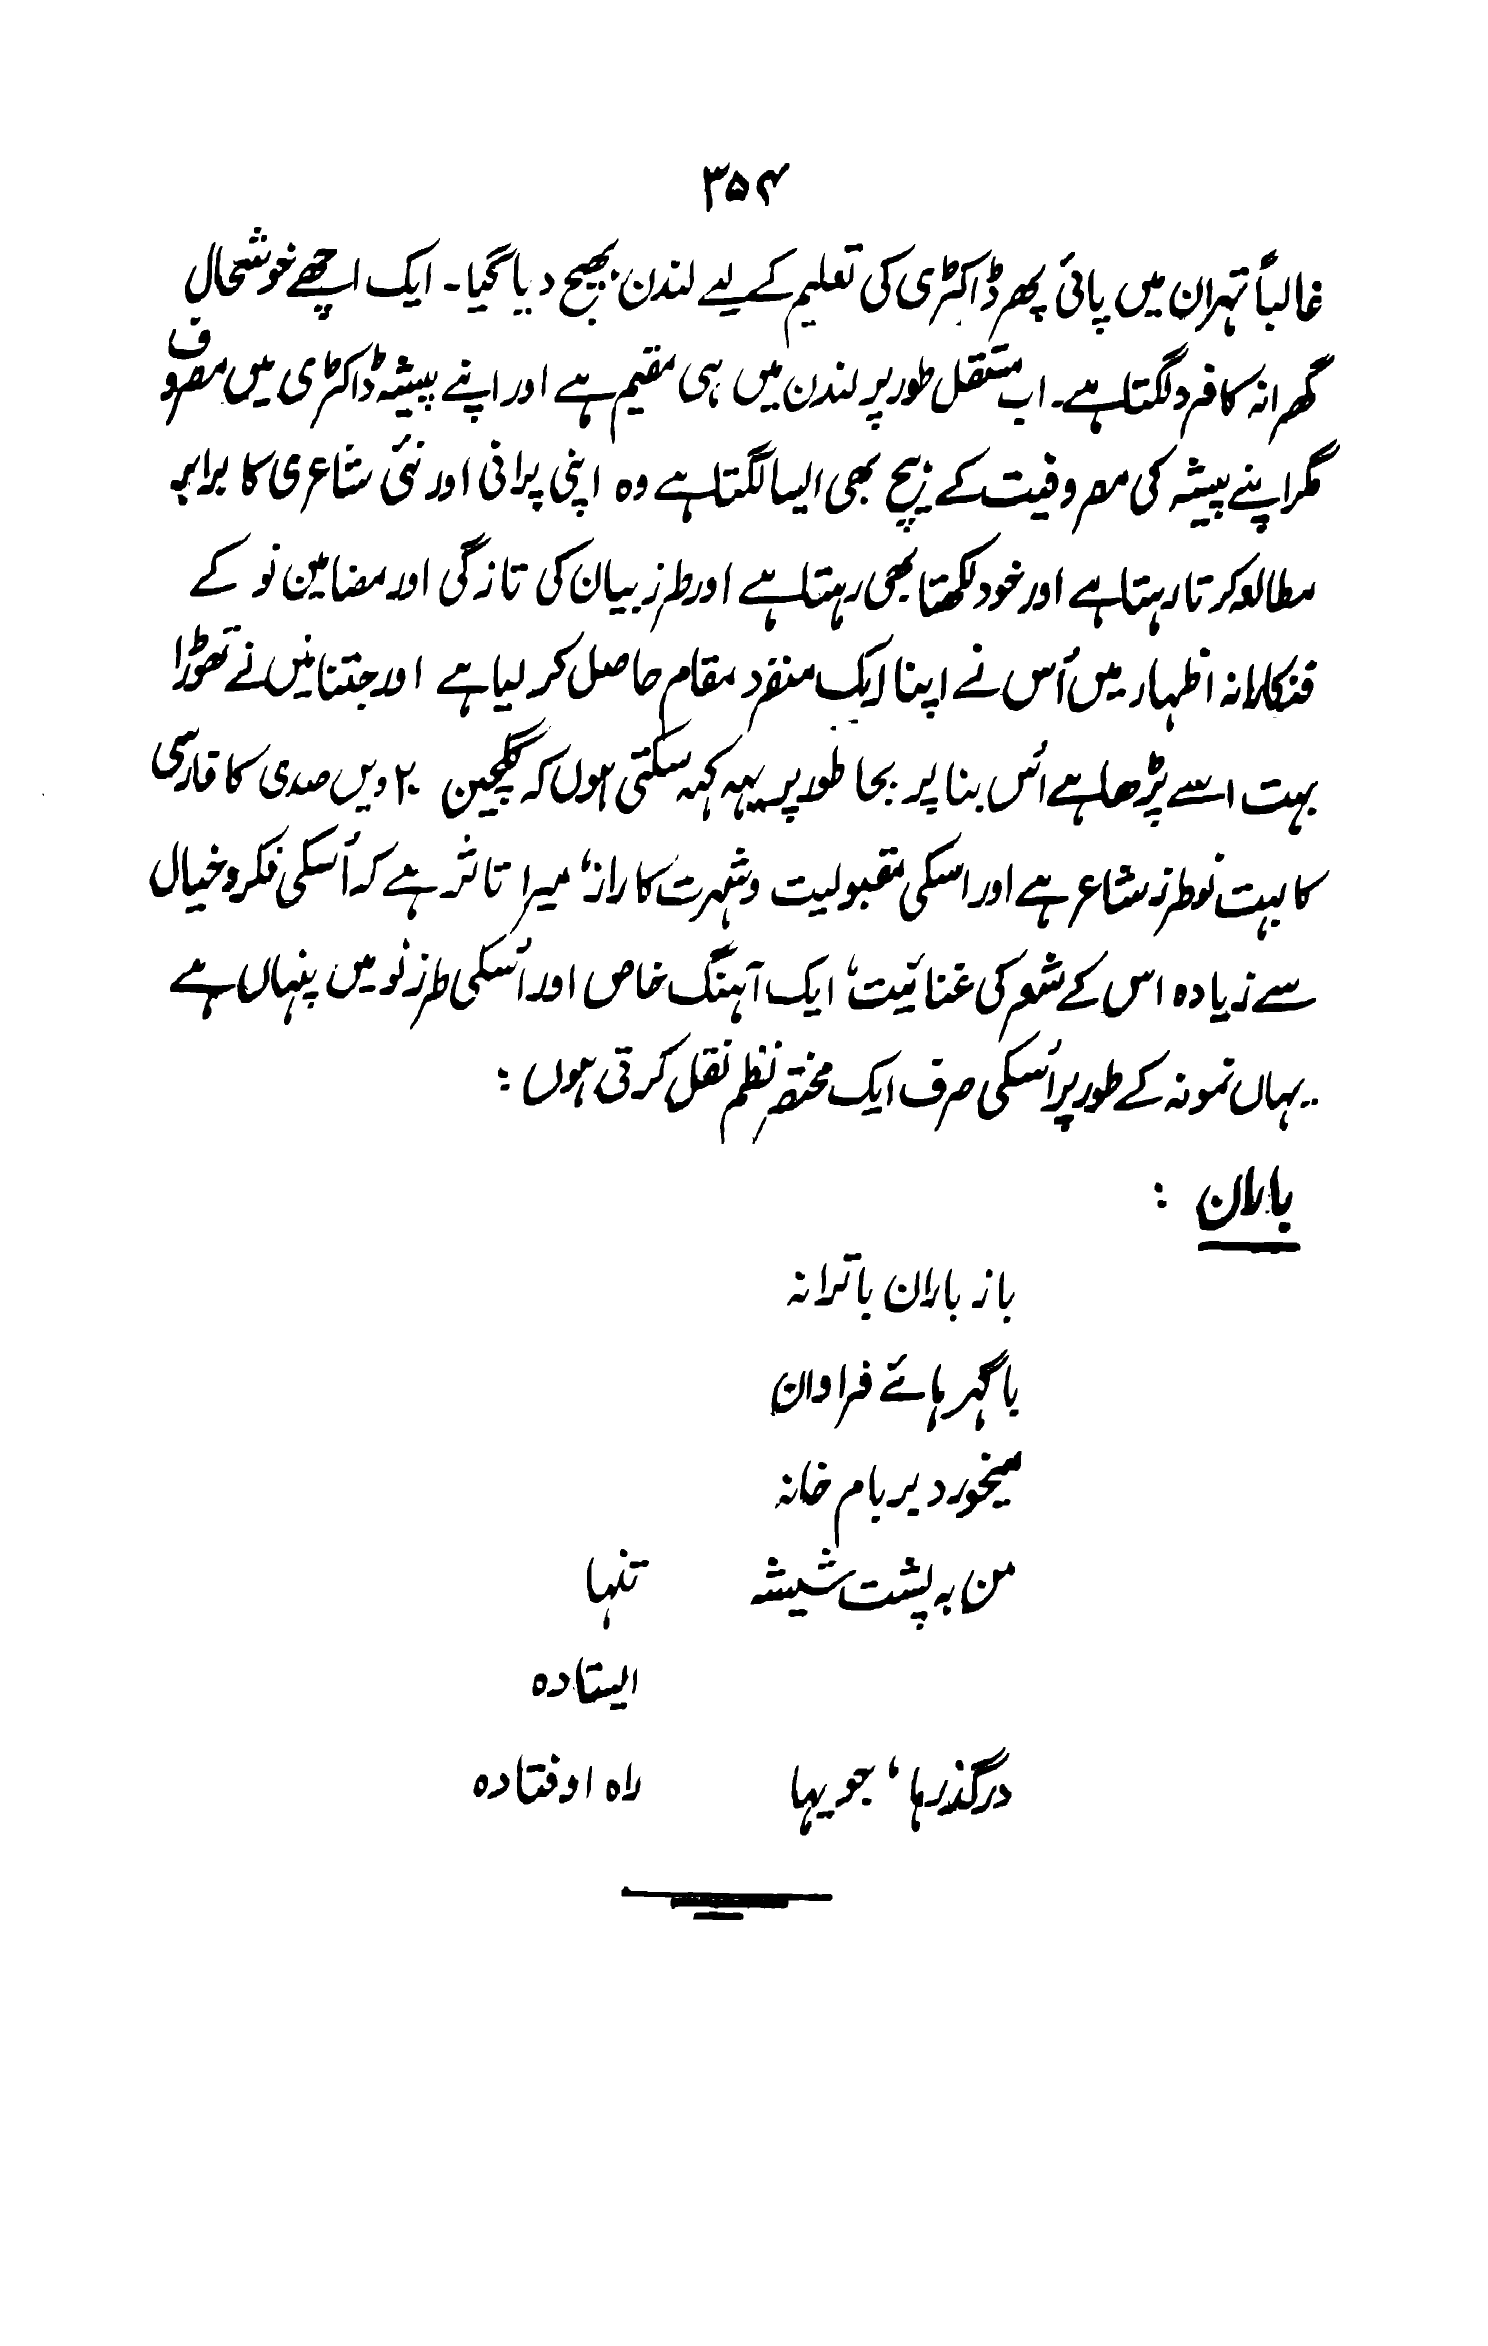 ۳۵۴
غالباً تہران میں پائی پھر ڈاکٹری کی تعلیم کے لیے لندن بھیج دیا گیا۔ ایک اچھے خوشحال
گھرانہ کا فرد لگتا ہے۔ اب مستقل طور پر لندن میں ہی مقیم ہے اور اپنے پیشہ ڈاکٹری میں مصروف
مگر اپنے پیشہ کی مصروفیت کے بیچ بھی ایسا لگتا ہے وہ اپنی پرانی اور نئی شاعری کا برابر
مطالعہ کرتا رہتا ہے اور خود لکھتا بھی رہتا ہے اور طرز بیان کی تازگی اور مضامین نو کے
فنکارانہ اظہار میں اُس نے اپنا ایک منفرد مقام حاصل کر لیا ہے اور جتنا میں نے تھوڑا
بہت اسے پڑھا ہے اُس بنا پر بجا طور پر یہہ کہہ سکتی ہوں کہ گلچین ۲۰ ویں صدی کا فارسی
کا بہت نو طرز شاعر ہے اور اسکی مقبولیت و شہرت کا راز، میرا تاثر ہے کہ اُسکی فکر و خیال
سے زیادہ اس کے شعر کی غنائیت، ایک آہنگ خاص اور اُسکی طرز نو میں پنہاں ہے
۔۔ یہاں نمونہ کے طور پر اُسکی صرف ایک مختصر نظم نقل کرتی ہوں :
باران :
باز باران با ترانہ
با گہر ہائے فراوان
میخورد بر بام خانہ
من بہ پشت شیشہ تنہا
ایستادہ
در گذرہا، جویہا راہ اوفتادہ